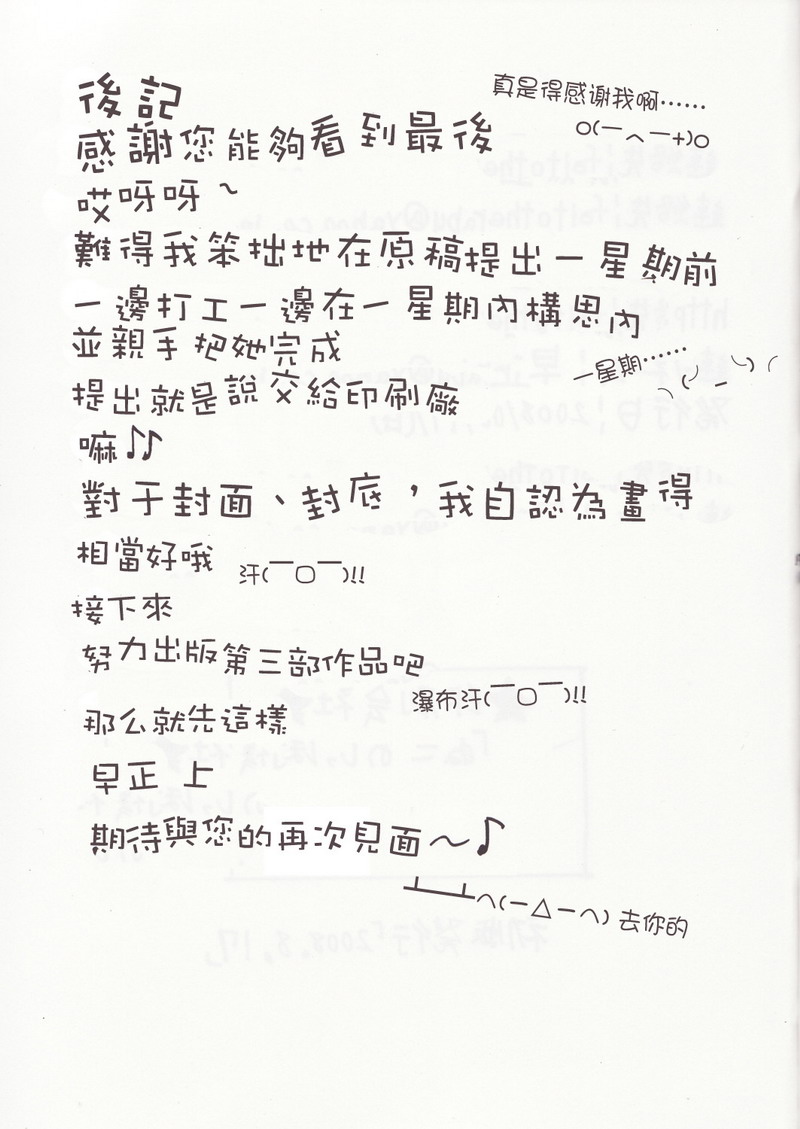 後記
真是得感谢我啊……
o(一へ一+)o
感謝您能夠看到最後
哎呀呀～
難得我笨拙地在原稿提出一星期前
一邊打工一邊在一星期內構思內
並親手把她完成
一星期……
提出就是說交給印刷廠
嘛♪♪
對于封面、封底，我自認為畫得
相當好哦
汗(￣□￣)!!
接下來
努力出版第三部作品吧
瀑布汗(￣□￣)!!
那么就先這樣
早正 上
期待與您的再次見面～♪
┴┴へ(一△一へ) 去你的